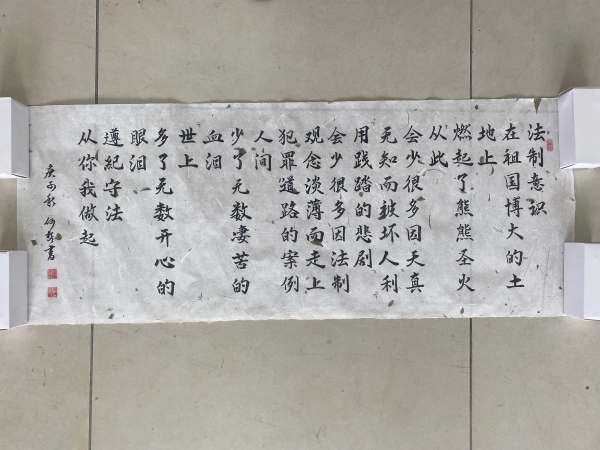 法制意识
在祖国博大的土
地上
燃起了熊熊圣火
从此
会少很多因天真
无知而被坏人利
用践踏的悲剧
会少很多因法制
观念淡薄而走上
犯罪道路的案例
人间
少了无数凄苦的
血泪
世上
多了无数开心的
眼泪
遵紀守法
从你我做起
庚子秋 書